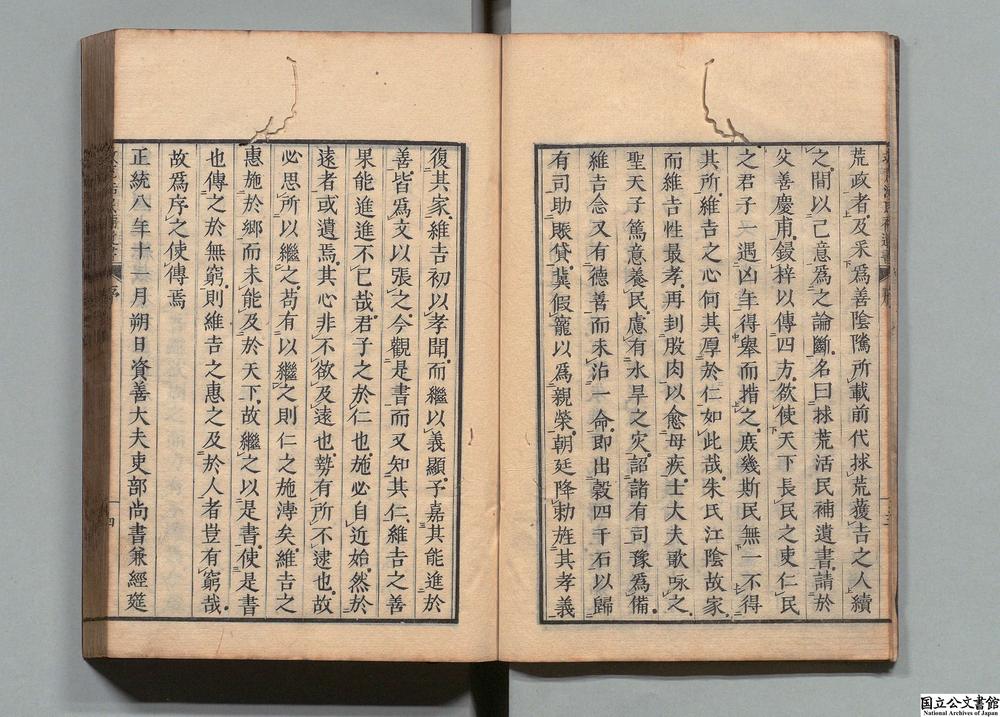 荒政者及采爲善陰隲所載前代捄荒獲吉之人續
之間以己意爲之論斷名曰捄荒活民補遺書請於
父善慶甫鋟梓以傳四方欲使天下長民之吏仁民
之君子一遇凶年得舉而措之庻幾斯民無一不得
其所維吉之心何其厚於仁如此哉朱氏江陰故家
而維吉性最孝再刲股肉以愈母疾士大夫歌咏之
聖天子篤意養民慮有水旱之灾詔諸有司豫爲備
維吉念又有德善而未沾一命即出糓四千石以歸
有司助賑貸兾假寵以爲親榮朝廷降勅旌其孝義
復其家維吉初以孝聞而繼以義顯予嘉其能進於
善皆爲文以張之今觀是書而又知其仁維吉之善
果能進進不已哉君子之於仁也施必自近始然於
遠者或遺焉其心非不欲及遠也勢有所不逮也故
必思所以繼之苟有以繼之則仁之施溥矣維吉之
惠施於鄉而未能及於天下故繼之以是書使是書
也傳之於無窮則維吉之惠之及於人者豈有窮哉
故爲序之使傳焉
正統八年十一月朔日資善大夫吏部尚書兼經筵
序
四
国立公文書館
National Archives of Japan